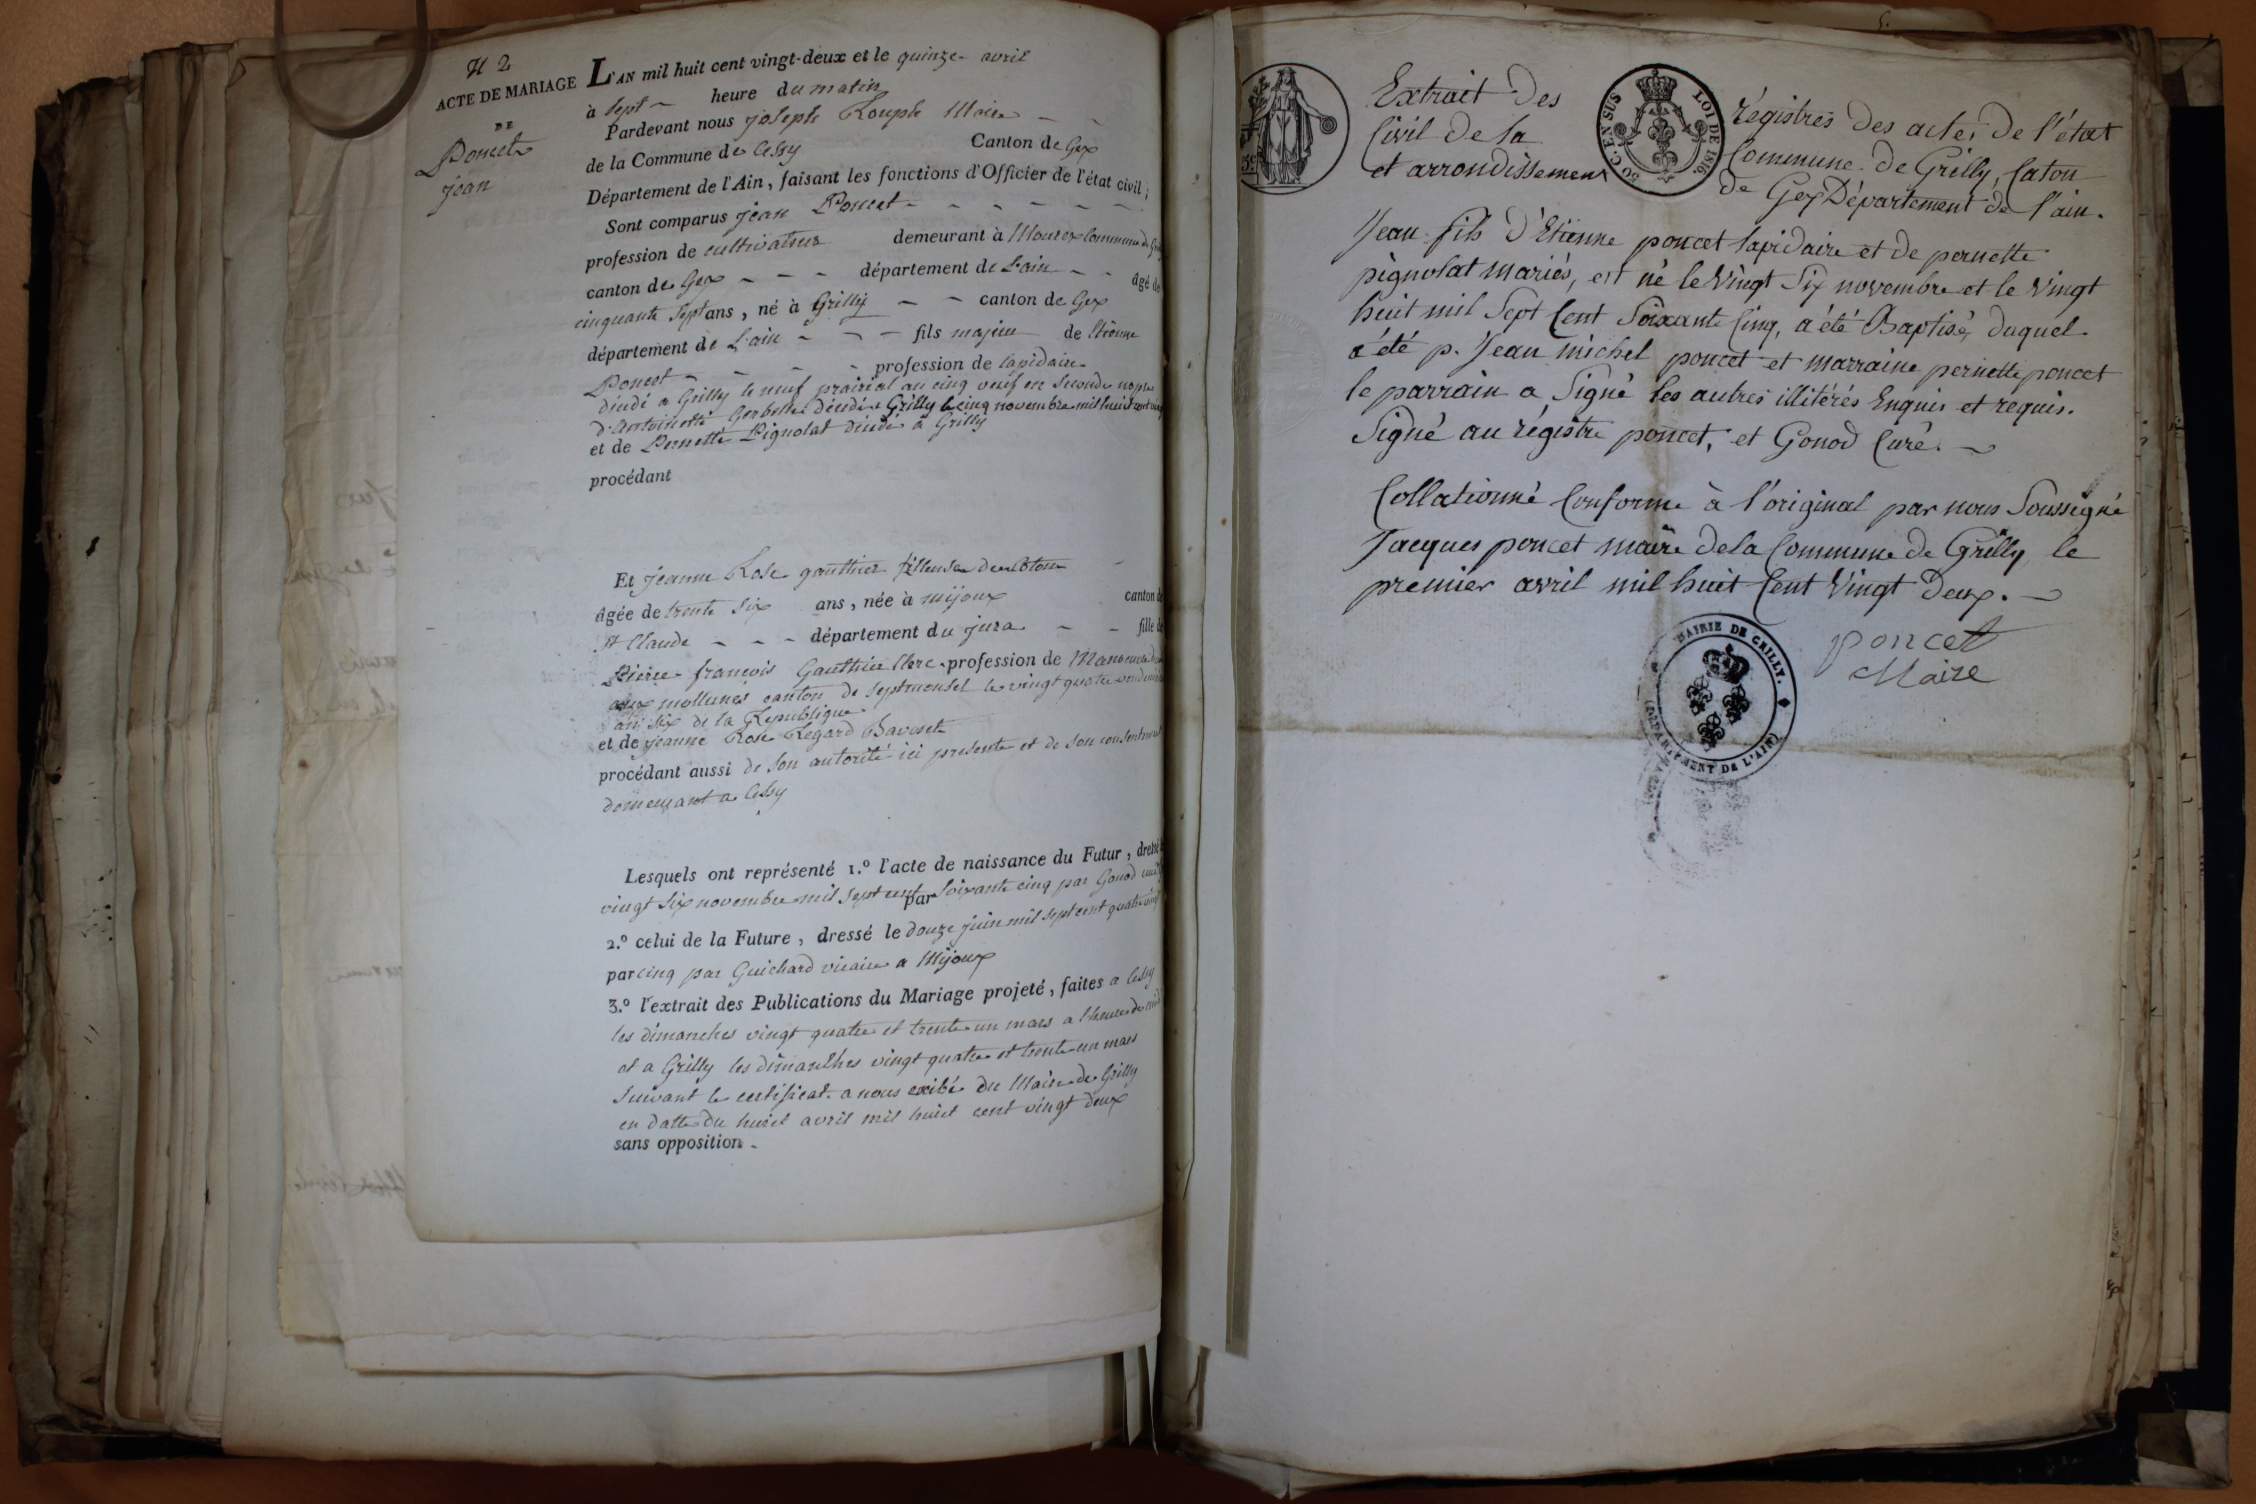 N 2
ACTE DE MARIAGE
DE
Poncet
jean
L'AN mil huit cent vingt-deux et le quinze avril
à sept heure du matin
Pardevant nous joseph Rouph Maire
de la Commune de Cessy Canton de Gex
Département de l'Ain, faisant les fonctions d'Officier de l'état civil;
Sont comparus jean Poncet
profession de cultivateur demeurant à Mourex Commune de
canton de Gex département de L'ain âgé de
cinquante Sept ans, né à Grilly canton de Gex
département de L'ain fils majeur de Etienne
Poncet profession de lapidaire
décédé a Grilly le neuf prairial an cinq veuf en seconde noples
d'Antoinette Gerbette décédé a Grilly le cinq novembre mil huit cent
et de Pernette Pignolat décédé à Grilly
procédant
Et jeanne Rose gauthier fileuse de Coton
âgée de trente six ans, née à mijoux canton de
St Claude département du jura fille de
Pierre françois Gauthier Clerc profession de
aux mollunes canton de septmonsel le vingt quatre
an six de la Republique
et de jeanne Rose Regard Bavoset
procédant aussi de son autorité ici presente et de son consentement
demeurant a Cessy
Lesquels ont représenté 1.º l'acte de naissance du Futur, dressé
vingt six novembre mil sept cent soixante cinq par Gonod
par
2.º celui de la Future, dressé le douze juin mil sept cent quatre vingt
par cinq par Guichard vicaire a Mijoux
3.º l'extrait des Publications du Mariage projeté, faites a Cessy
les dimanches vingt quatre et trente un mars a l'heure de
et a Grilly les dimanches vingt quatre et trente un mars
suivant le certificat a nous exibé du Maire de Grilly
en datte du huit avril mil huit cent vingt deux
sans opposition
Extrait Des régistres des actes de l'état
Civil de la Commune de Grilly, Caton
et arrondissement de Gex Département de l'ain.
50 C. EN SUS LOI DE 1816
Jean fils d'Etienne poncet lapidaire et de pernette
pignolat mariés, est né le vingt six novembre et le vingt
huit mil Sept Cent Soixante Cinq, a été Baptisé, duquel
a été p. Jean michel poncet et marraine pernette poncet
le parrain a Signé les autres illitérés Enquis et requis.
Signé au régistre poncet, et Gonod Curé.
Collationné Conforme à l'original par nous Soussigné
Jacques poncet maire de la Commune de Grilly le
premier avril mil huit Cent Vingt Deux.
poncet
Maire
MAIRIE DE GRILLY.
(DÉPARTEMENT DE L'AIN)